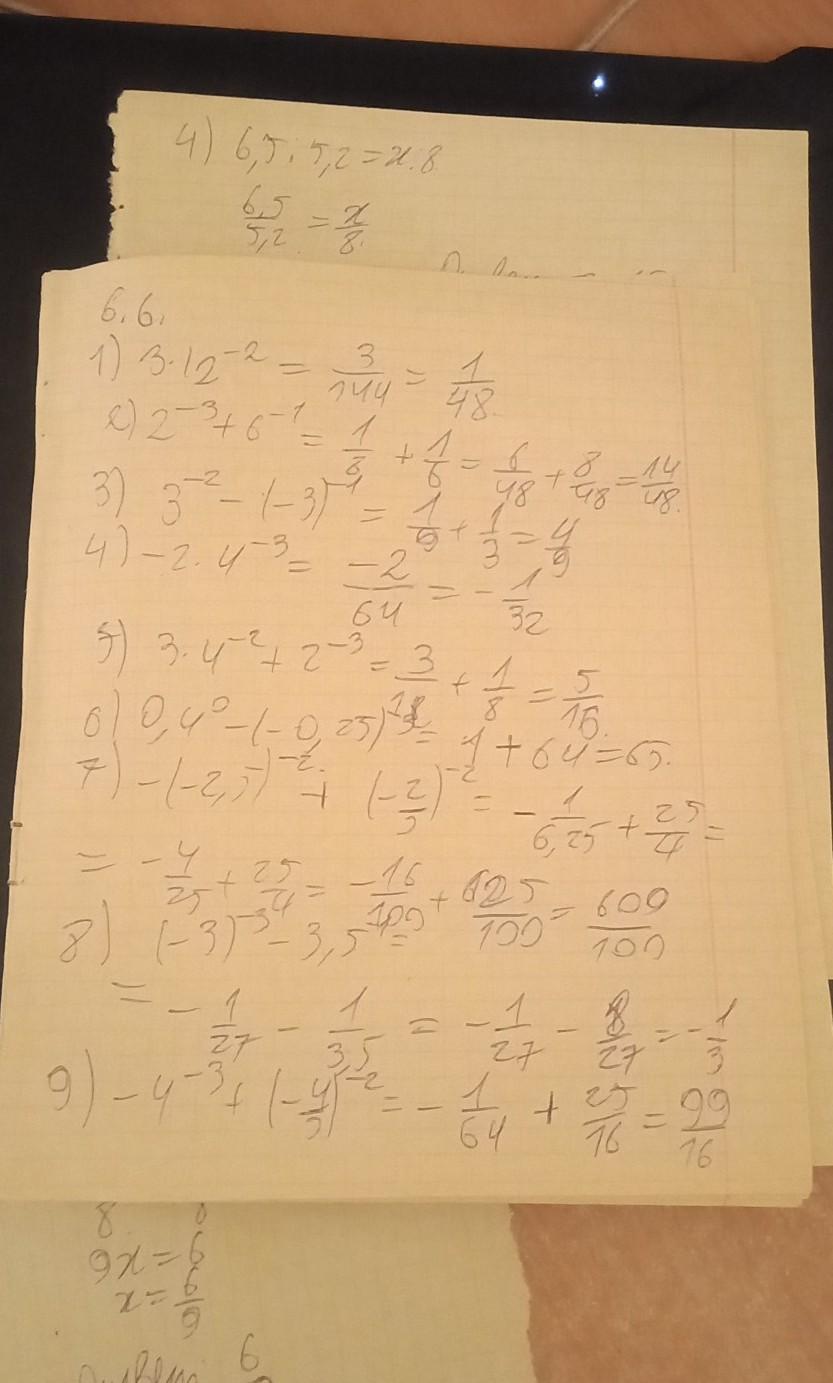 4) 6,5 : 5,2 = x : 8
6,5/5,2 = x/8.
6.6.
1) 3·12^-2 = 3/144 = 1/48.
2) 2^-3 + 6^-1 = 1/8 + 1/6 = 6/48 + 8/48 = 14/48.
3) 3^-2 - (-3)^-1 = 1/9 + 1/3 = 4/9
4) -2·4^-3 = -2/64 = -1/32
5) 3·4^-2 + 2^-3 = 3/16 + 1/8 = 5/16.
6) 0,4^0 - (-0,25)^-3 = 1 + 64 = 65.
7) -(-2,5)^-2 + (-2/5)^-2 = -1/6,25 + 25/4 =
= -4/25 + 25/4 = -16/100 + 625/100 = 609/100
8) (-3)^-3 - 3,5^-1 =
= -1/27 - 1/3,5 = -1/27 - 8/27 = -1/3
9) -4^-3 + (-4/5)^-2 = -1/64 + 25/16 = 99/16
8
9x = 6
x = 6/9
6